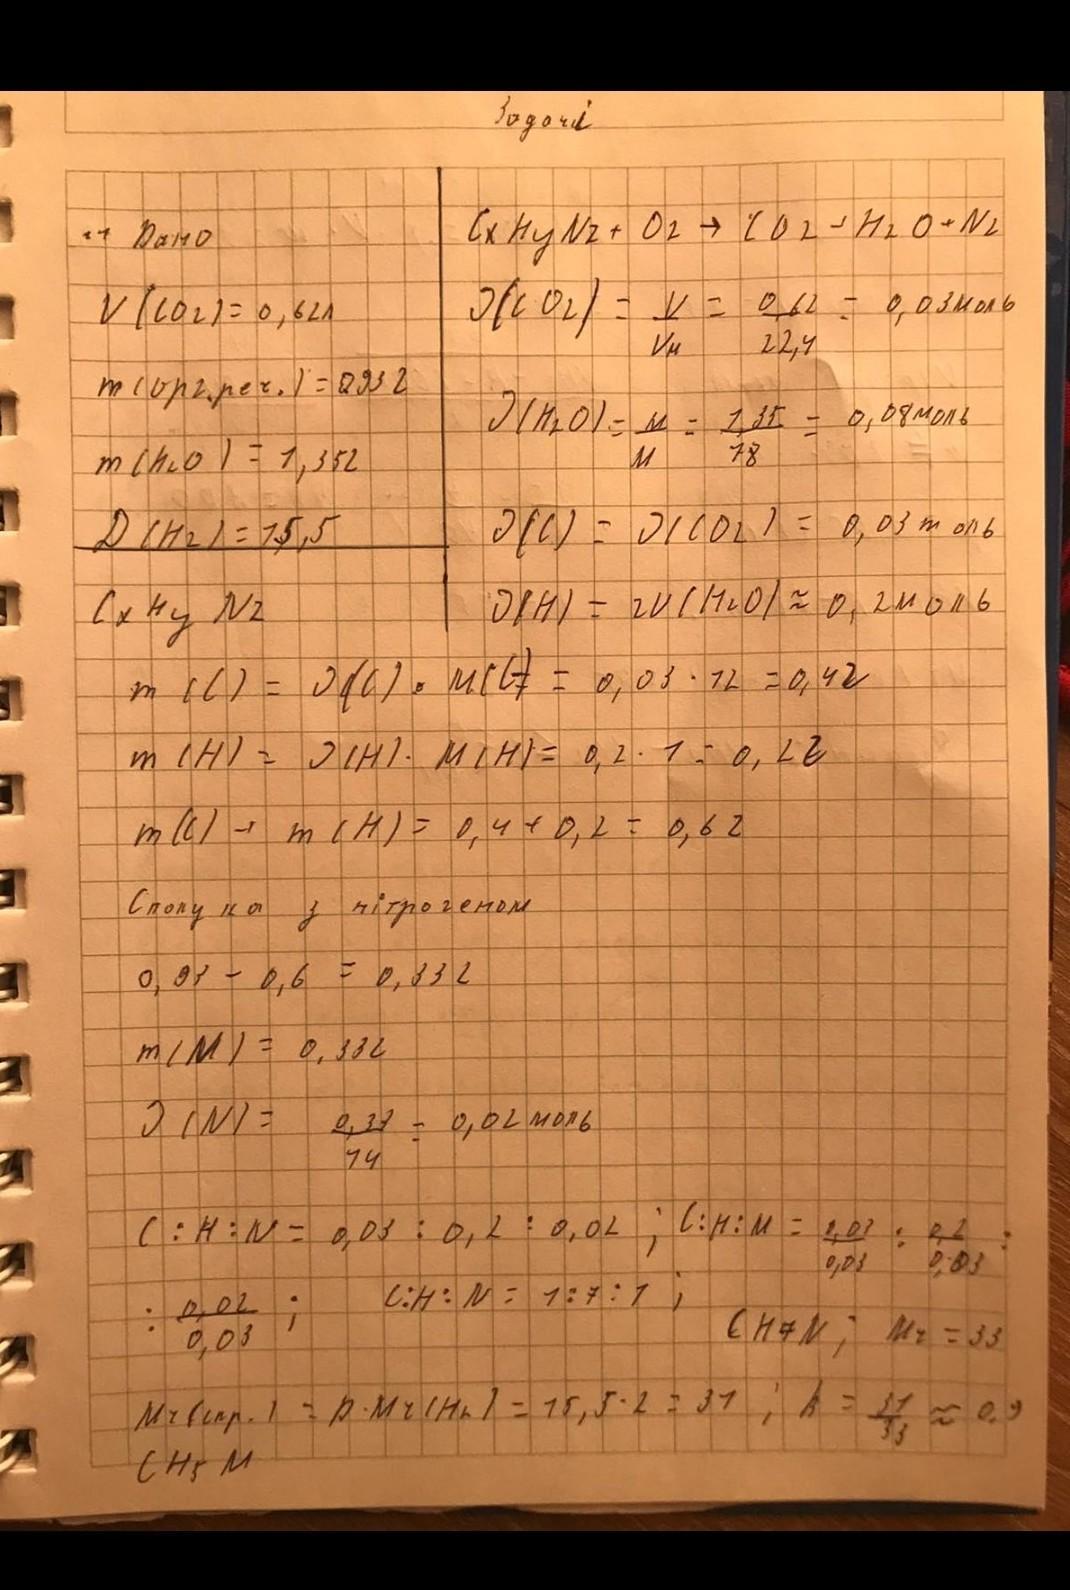 Задачі
Дано
V(CO2) = 0,62л
m(орг.реч.) = 0,93г
m(H2O) = 1,35г
D(H2) = 15,5
CxHyNz
CxHyNz + O2 → CO2 + H2O + N2
ν(CO2) = V/Vм = 0,62/22,4 = 0,03моль
ν(H2O) = m/M = 1,35/18 = 0,08моль
ν(C) = ν(CO2) = 0,03моль
ν(H) = 2ν(H2O) ≈ 0,2моль
m(C) = ν(C) · M(C) = 0,03 · 12 = 0,4г
m(H) = ν(H) · M(H) = 0,2 · 1 = 0,2г
m(C) + m(H) = 0,4 + 0,2 = 0,6г
Сполука з нітрогеном
0,93 - 0,6 = 0,33г
m(N) = 0,33г
ν(N) = 0,33/14 = 0,02моль
C:H:N = 0,03 : 0,2 : 0,02 ; C:H:N = 0,03/0,03 : 0,2/0,03 :
: 0,02/0,03 ; C:H:N = 1:7:1 ;
CH7N ; Mr = 33
Mr(спр.) = D·Mr(H2) = 15,5·2 = 31 ; k = 31/33 ≈ 0,9
CH5N